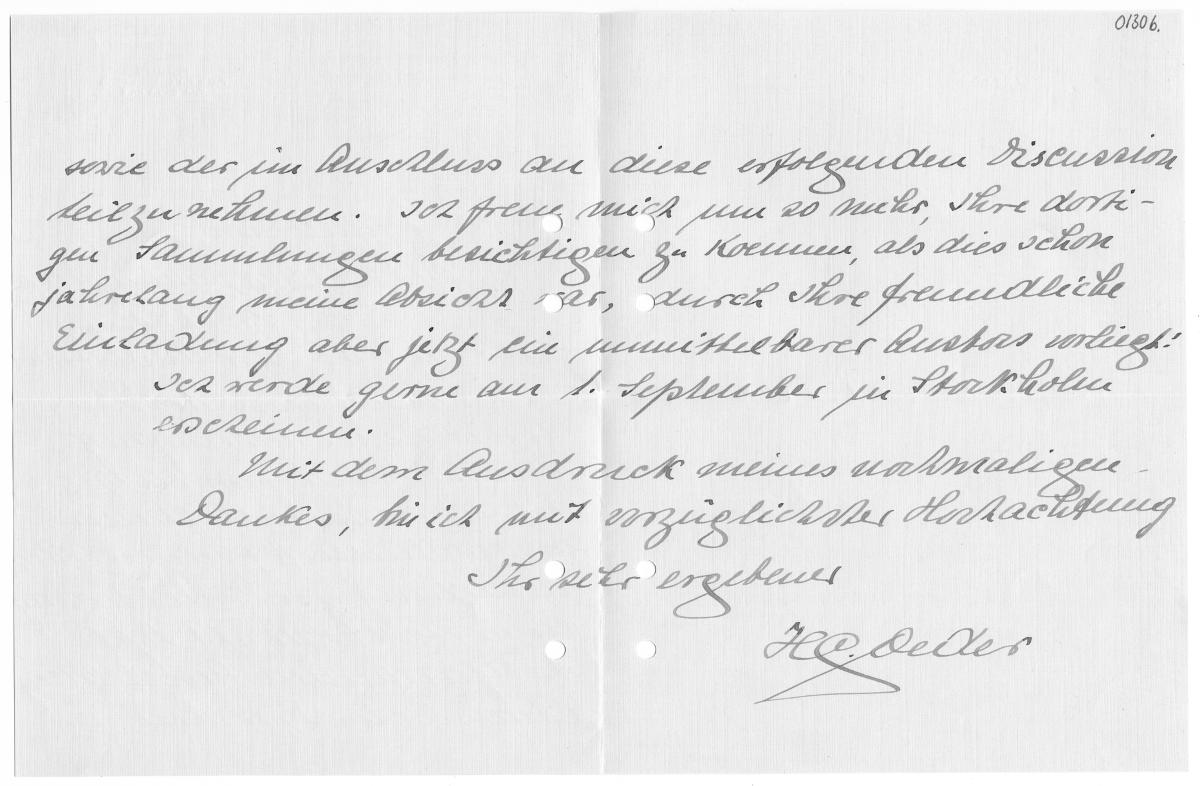 01306.
sowie der im Anschluss an diese erfolgenden Discussion
teilzunehmen. Ich freue mich um so mehr, Ihre dorti-
gen Sammlungen besichtigen zu koennen, als dies schon
jahrelang meine Absicht war, durch Ihre freundliche
Einladung aber jetzt ein unmittelbarer Anstoss vorliegt!
Ich werde gerne am 1. September in Stockholm
erscheinen.
Mit dem Ausdruck meines nochmaligen
Dankes, bin ich mit vorzüglichster Hochachtung
Ihr sehr ergebener
HC. Oeder